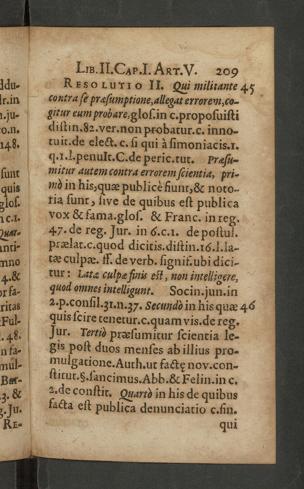 LIB. II. CAP. I. ART. V. 209
RESOLUTIO II. Qui militante 45
contra se præsumptione, allegat errorem, co-
gitur eum probare, glos. in c. proposuisti
distin. 82. ver. non probatur. c. inno-
tuit. de elect. c. si qui à simoniacis. 1.
q. 1. l. penult. C. de peric. tut. Præsu-
mitur autem contra errorem scientia, pri-
mò in his, quæ publicè fiunt, & noto-
ria sunt, sive de quibus est publica
vox & fama. glos. & Franc. in reg.
47. de reg. Jur. in 6. c. 1. de postul.
prælat. c. quod dicitis. distin. 16. l. la-
tæ culpæ. ff. de verb. signif. ubi dici-
tur: Latæ culpæ finis est, non intelligere,
quod omnes intelligunt. Socin. jun. in
2. p. consil. 31. n. 37. Secundò in his quæ 46
quis scire tenetur. c. quam vis. de reg.
Jur. Tertiò præsumitur scientia le-
gis post duos menses ab illius pro-
mulgatione. Auth. ut factę nov. con-
stitut. §. sancimus. Abb. & Felin. in c.
2. de constit. Quartò in his de quibus
facta est publica denunciatio c. fin.
qui